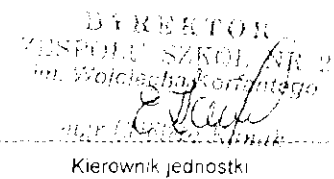 DYREKTOR
ZESPOŁU SZKÓŁ NR 2
im. Wojciecha Korfantego
mgr
Kierownik jednostki